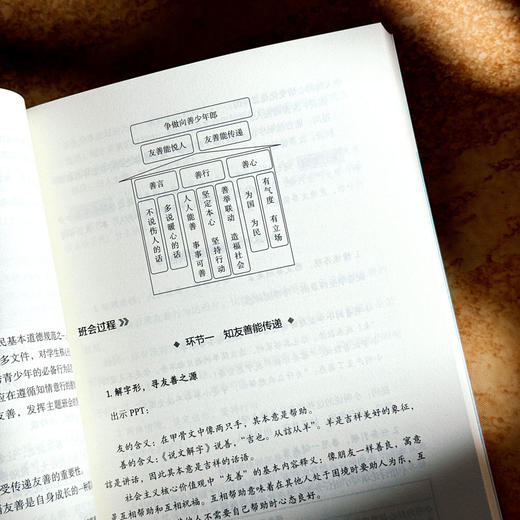 争做向善少年郎
友善能悦人 友善能传递
善言 善行 善心
不说伤人的话
多说暖心的话
人人能善 事事可善
坚定本心 坚持行动
善举联动 造福社会
为国 为民
有气度 有立场
班会过程
环节一 知友善能传递
1. 解字形，寻友善之源
出示 PPT：
友的含义：在甲骨文中像两只手，其本意是帮助。
善的含义：《说文解字》说善，“吉也。从誩从羊”。羊是吉祥美好的象征，
誩是讲话，因此其本意是吉祥的话语。
社会主义核心价值观中“友善”的基本内容释义：像朋友一样善良，寓意
是互相帮助和互相祝福。互相帮助意味着在其他人处于困境时要助人为乐，互
人不需要自己帮助时心态良好。
民基本道德规范之一
多文件，对学生核心
秀青少年的必备行为
应在遵循知情意行的
友善，发挥主题班会
受传递友善的重要性
友善是自身成长的一种